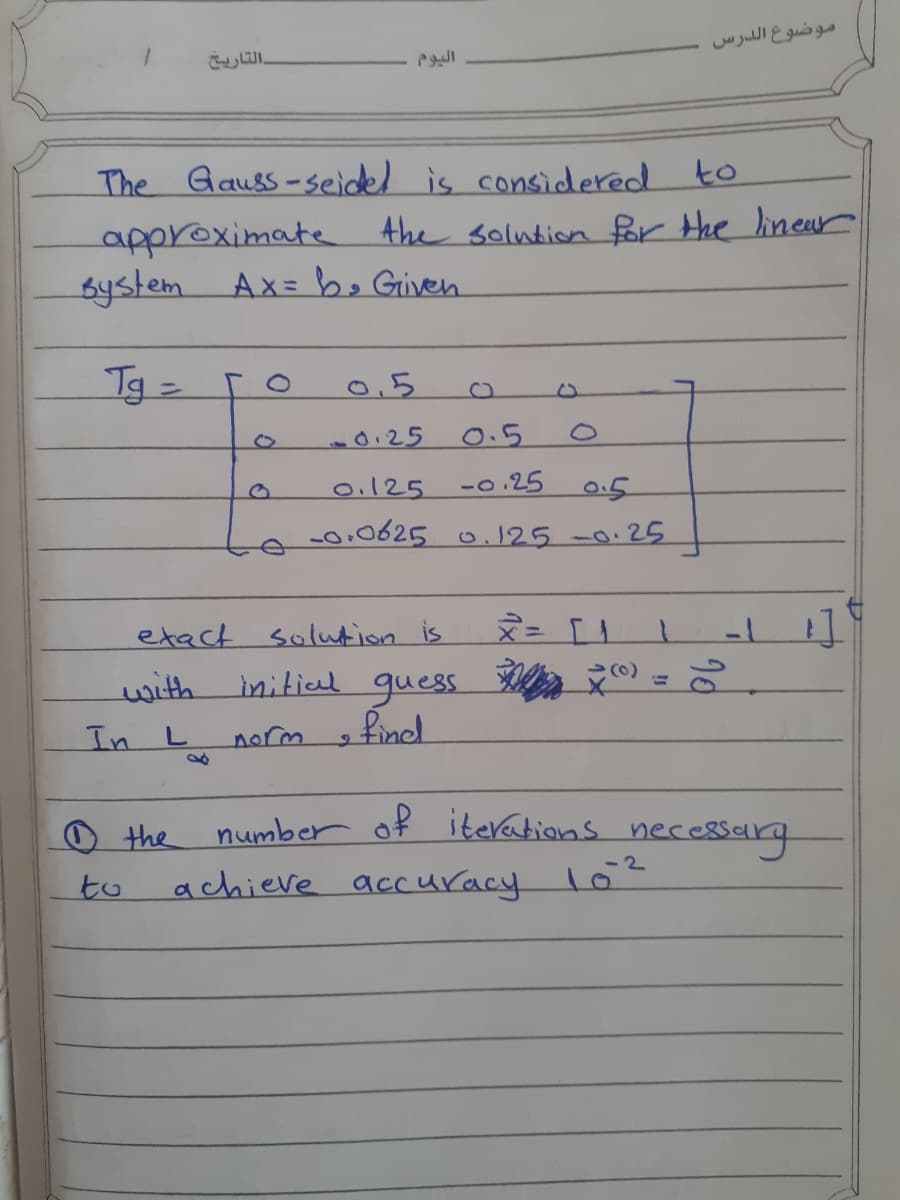 موضوع الدرس اليوم التاريخ /
The Gauss-seidel is considered to
approximate the solution for the linear
system Ax= b, Given
Tg = [ 0 0.5 0 0
0 -0.25 0.5 0
0 0.125 -0.25 0.5
0 -0.0625 0.125 -0.25 ]
exact solution is x⃗ = [1 1 -1 1]ᵗ
with initial guess x⃗⁽⁰⁾ = 0⃗ .
In L∞ norm , find
① the number of iterations necessary
to achieve accuracy 10⁻²